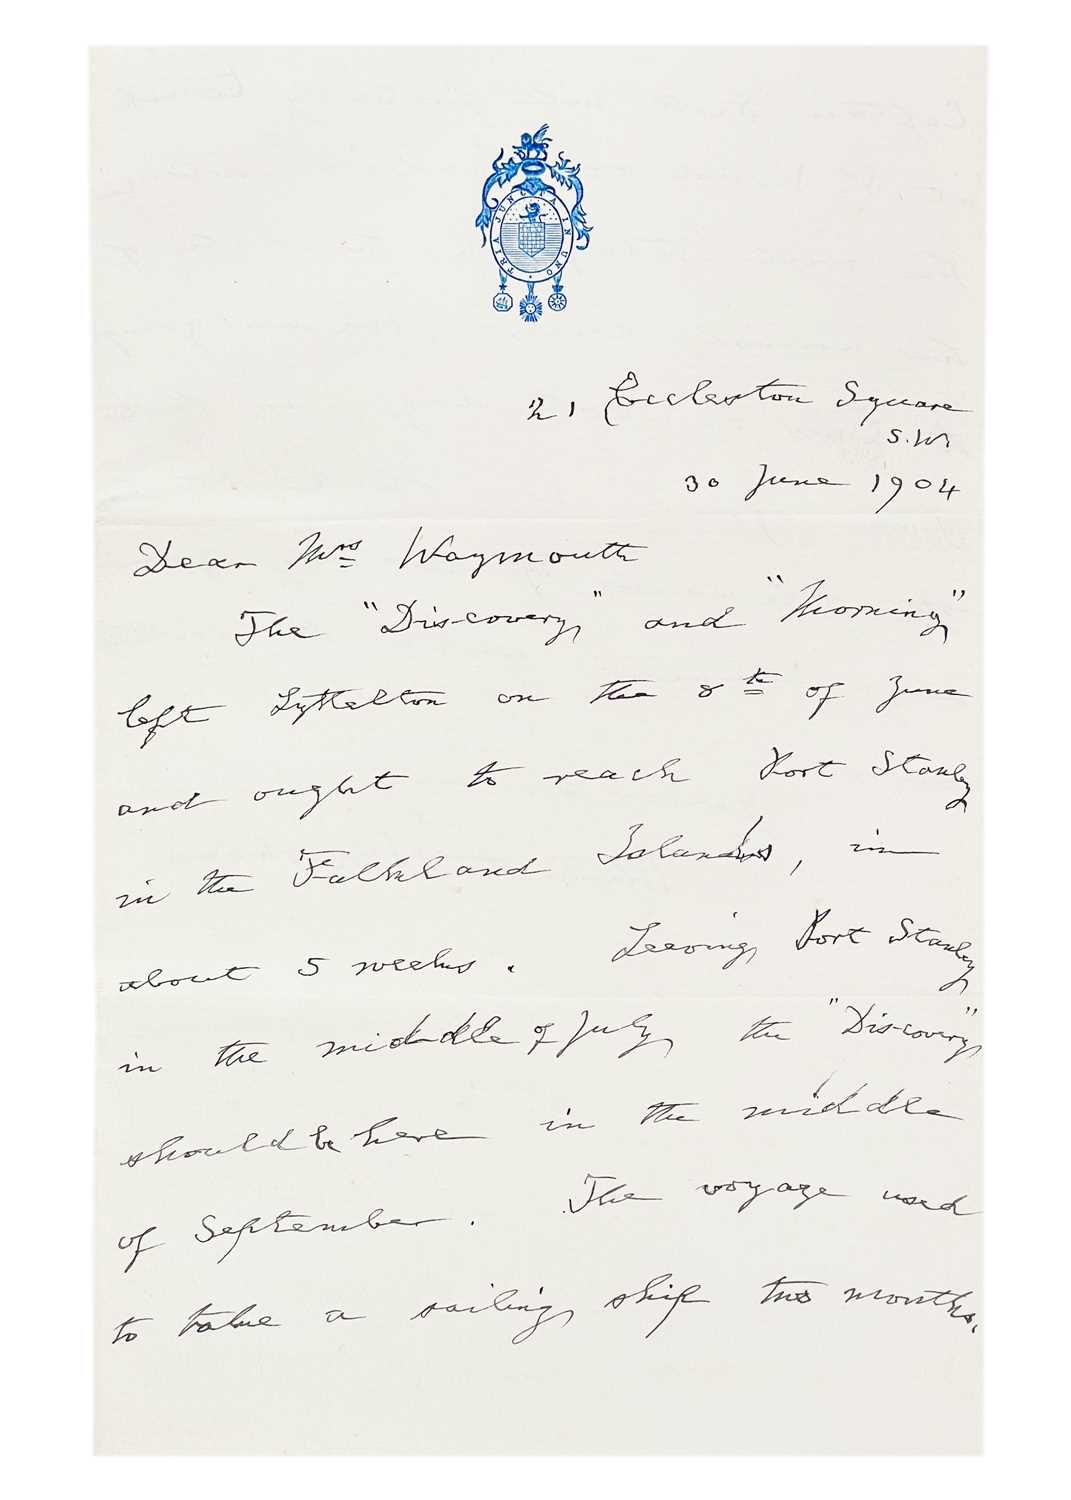 TRIA JUNCTA IN UNO
21 Eccleston Square
S.W.
30 June 1904
Dear Mrs Waymouth
The "Discovery" and "Morning"
left Lyttelton on the 8th of June
and ought to reach Port Stanley
in the Falkland Islands, in
about 5 weeks. Leaving Port Stanley
in the middle of July the "Discovery"
should be here in the middle
of September. The voyage used
to take a sailing ship two months.